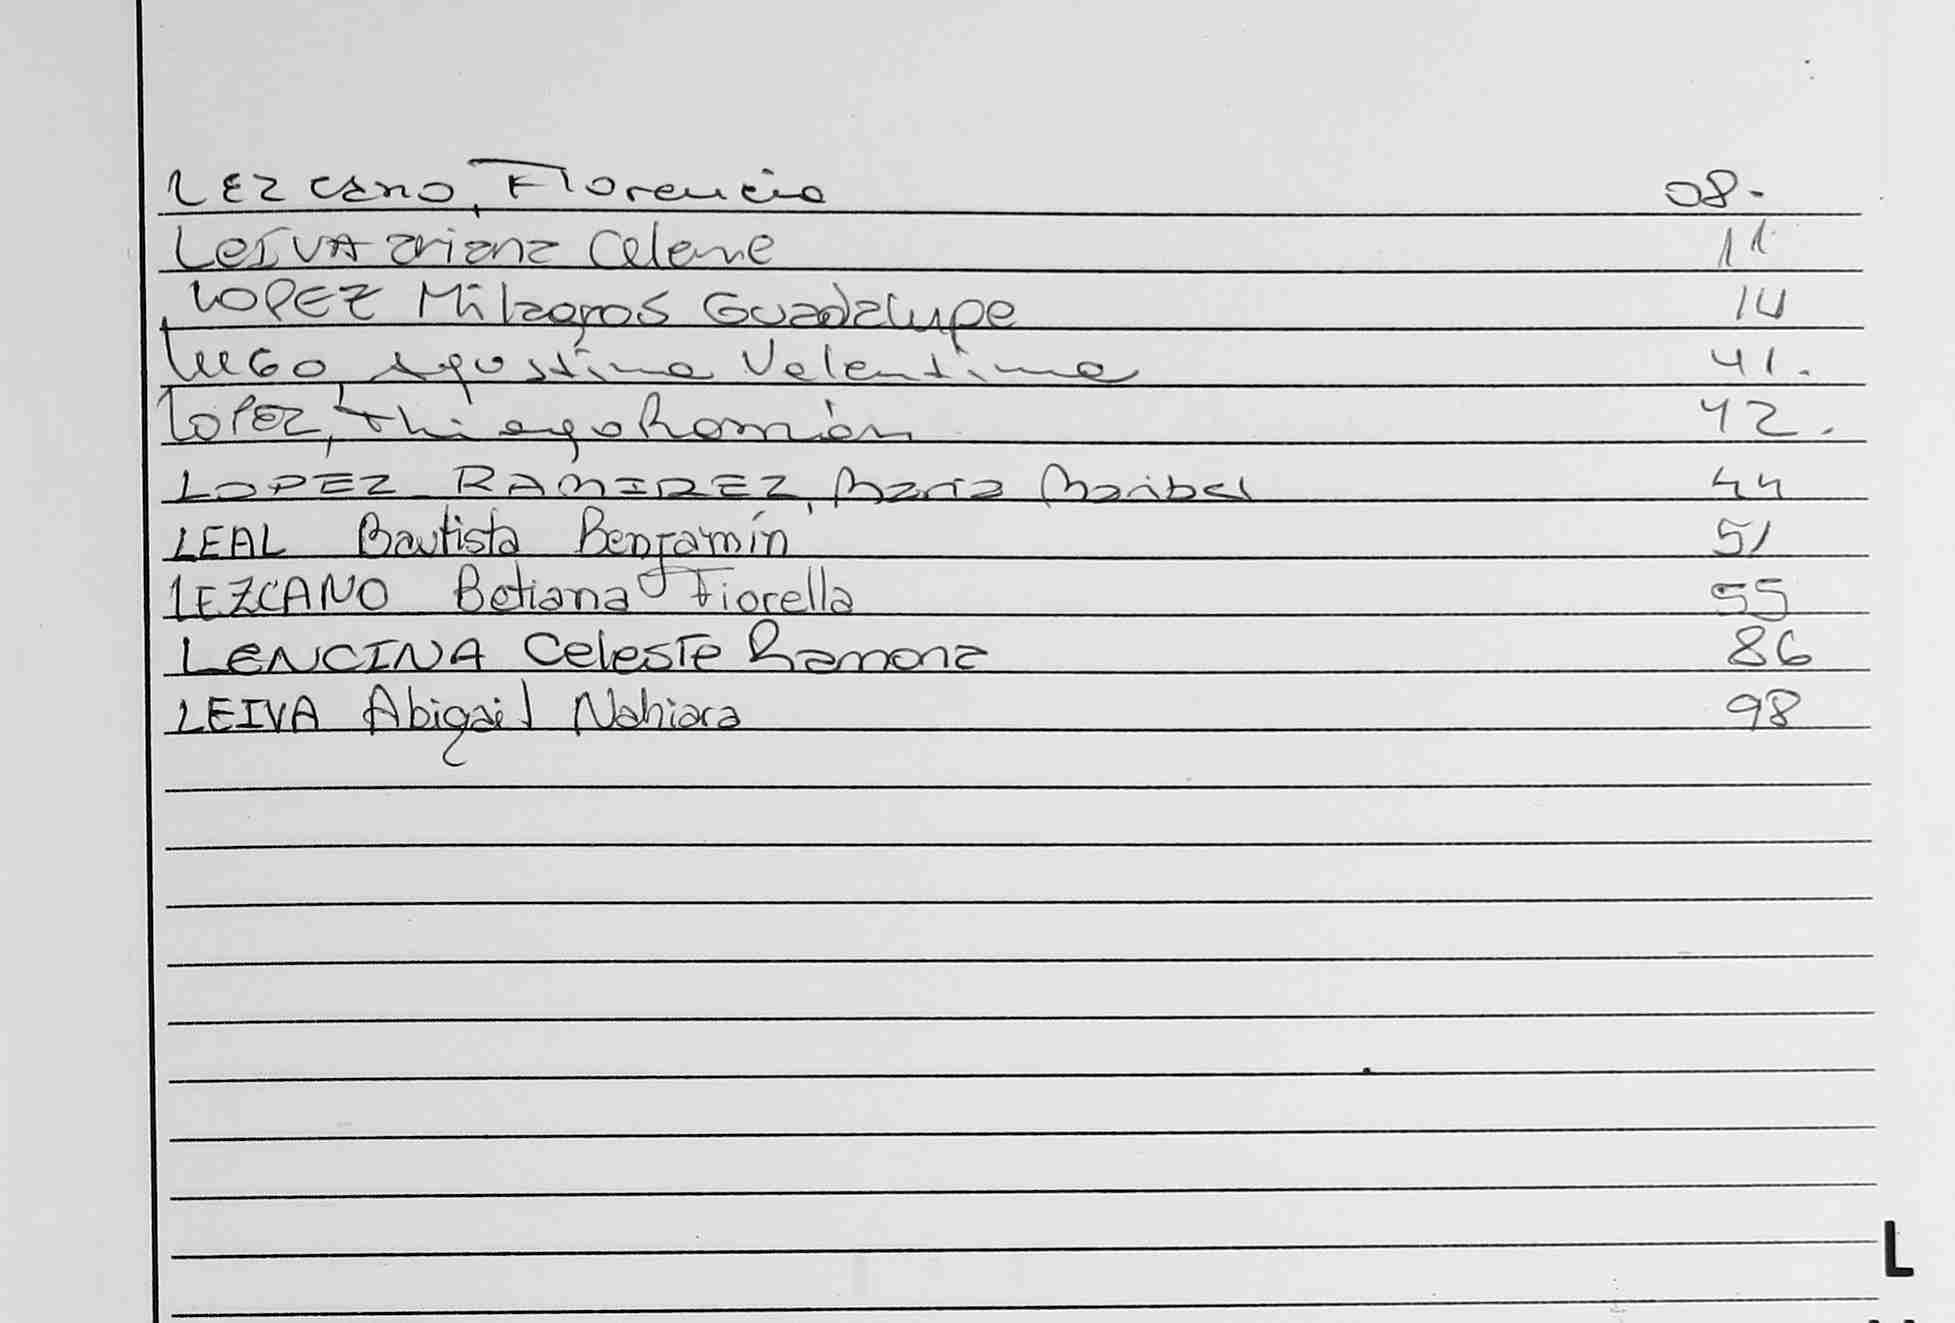 LEZCANO, Florencia 08.
LEIVA Ariana Celene 11
LOPEZ Milagros Guadalupe 14
LUGO, Agustina Valentina 41.
LOPEZ, Thiago Román 42.
LOPEZ RAMIREZ, Maria Maribel 44
LEAL Bautista Benjamín 51
LEZCANO Betiana Fiorella 55
LENCINA Celeste Ramona 86
LEIVA Abigail Nahiara 98
L